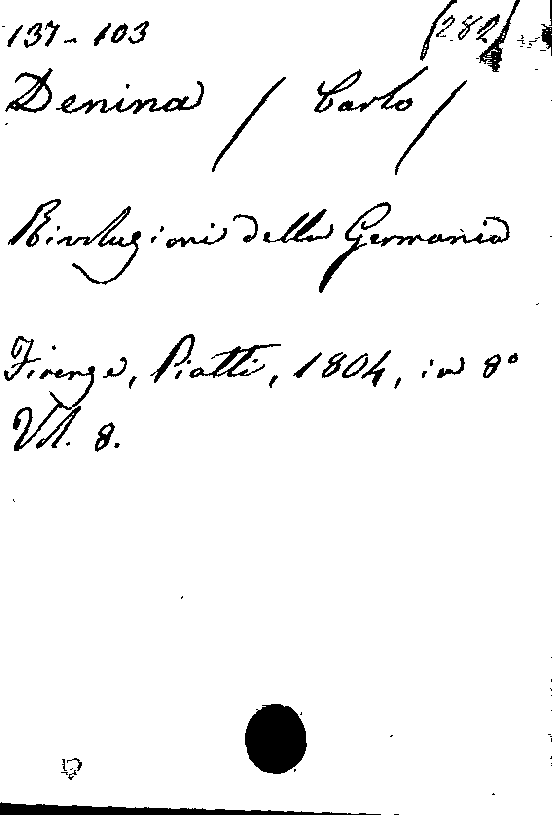 137-103 (282)
Denina / Carlo /
Rivoluzioni della Germania
Firenze, Piatti, 1804, in 8°
Vol. 8.